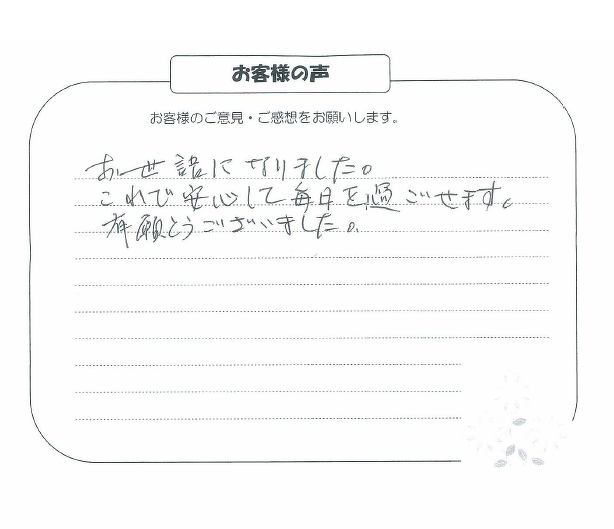 お客様の声
お客様のご意見・ご感想をお願いします。
お世話になりました。
これで安心して毎日を過ごせます。
有願とうございました。